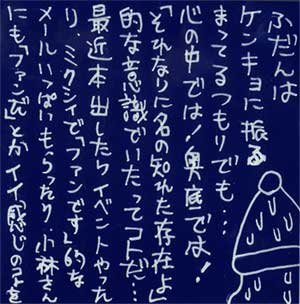 ふだんは
ケンキョに振る
まってるつもりでも…
心の中では!奥底では!
「それなりに名の知れた存在よ」
的な意識でいたってコだ…
最近本出したらイベントやった
り、ミクシィで「ファンです」的な
メールいっぱいもらったり、小林さん
にも「ファンだ」とかイイ感じのコトを